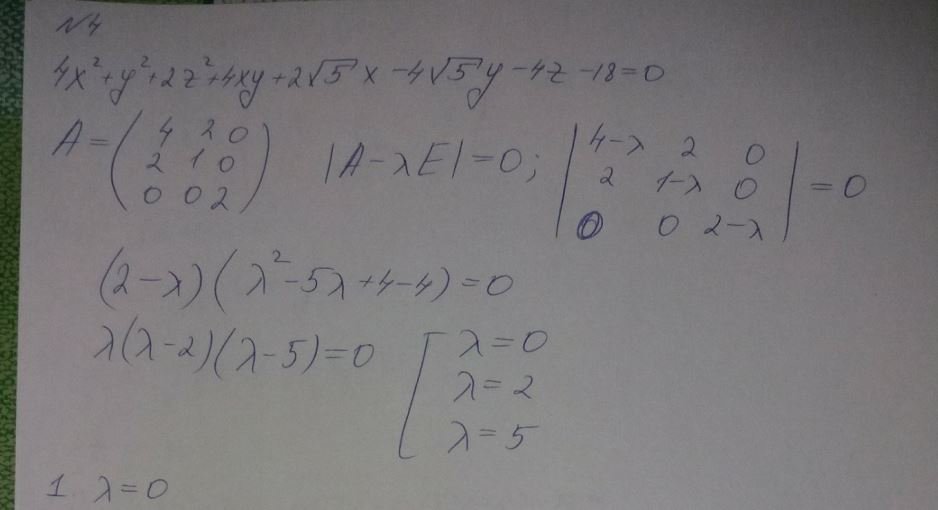 №4
4x²+y²+2z²+4xy+2√5x-4√5y-4z-18=0
A=(4 2 0 2 1 0 0 0 2) |A-λE|=0; |4-λ 2 0 2 1-λ 0 0 0 2-λ|=0
(2-λ)(λ²-5λ+4-4)=0
λ(λ-2)(λ-5)=0 [λ=0 λ=2 λ=5
1 λ=0